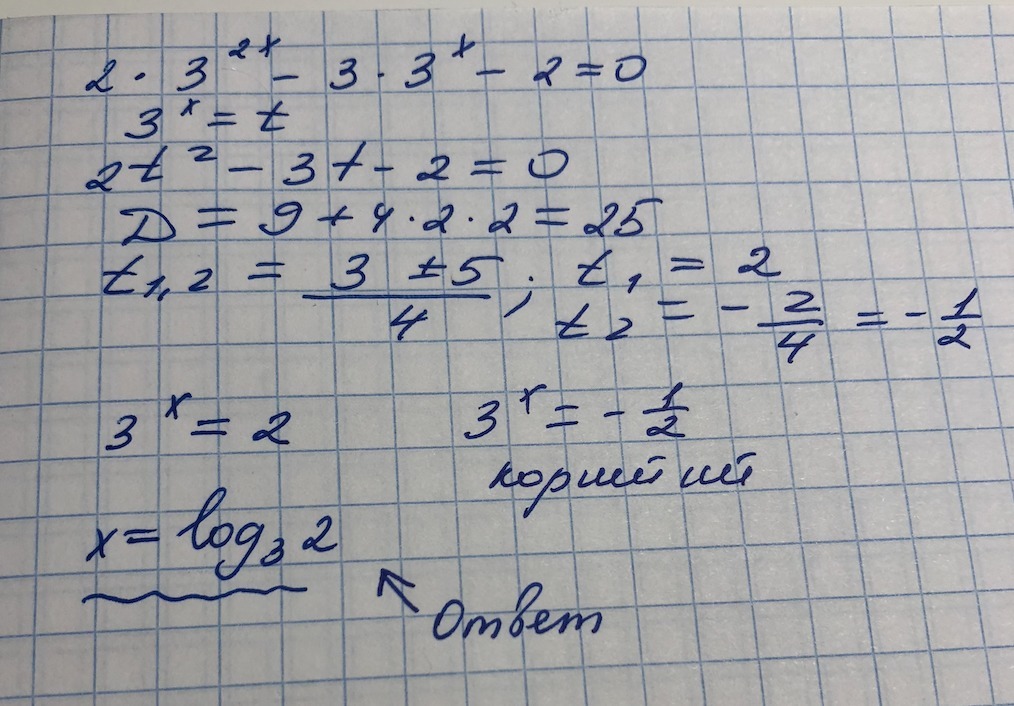 2 · 3^{2x} - 3 · 3^x - 2 = 0
3^x = t
2t^2 - 3t - 2 = 0
D = 9 + 4 · 2 · 2 = 25
t_{1,2} = \frac{3 ± 5}{4} ; t_1 = 2
t_2 = -\frac{2}{4} = -\frac{1}{2}
3^x = 2
3^x = -\frac{1}{2}
корней нет
x = log_3 2
Ответ